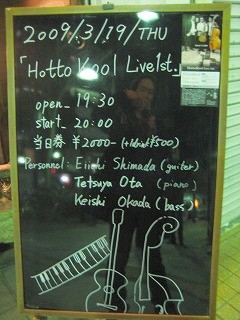 2009.3/19/THU
「Hotto Kool Live1st.」
open_ 19:30
start_ 20:00
当日券 ¥2000- (+1drink¥500)
Personnel: Eiichi Shimada (guiter)
Tetsuya Ota (piano)
Keishi Okada (bass)